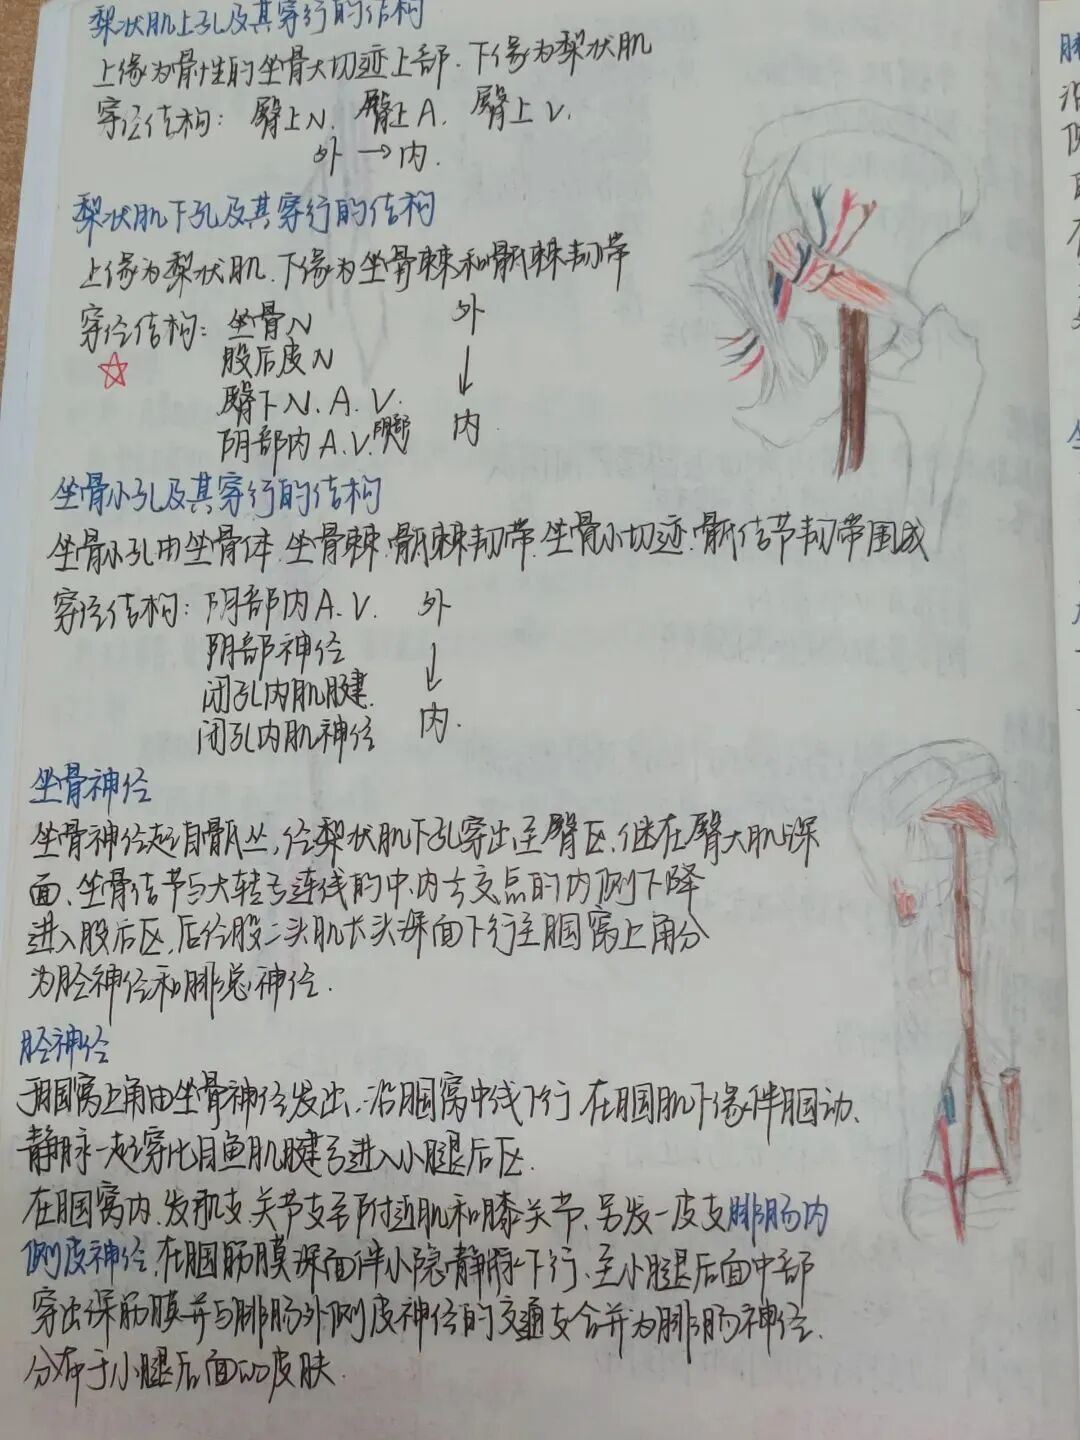 梨状肌上孔及其穿行的结构
上缘为骨性的坐骨大切迹上部、下缘为梨状肌
穿经结构：臀上N、臀上A、臀上V、
外→内.
梨状肌下孔及其穿行的结构
上缘为梨状肌、下缘为坐骨棘和骶棘韧带
穿经结构：坐骨N 外
股后皮N ↓
臀下N、A、V、
阴部内A、V、阴部 内
坐骨小孔及其穿行的结构
坐骨小孔由坐骨体、坐骨棘、骶棘韧带、坐骨小切迹、骶结节韧带围成
穿经结构：阴部内A、V、 外
阴部神经 ↓
闭孔内肌腱
闭孔内肌神经 内.
坐骨神经
坐骨神经起自骶丛，经梨状肌下孔穿出至臀区、继在臀大肌深
面、坐骨结节与大转子连线的中、内交点的内侧下降
进入股后区，后经股二头肌长头深面下行至腘窝上角分
为胫神经和腓总神经.
胫神经
于腘窝上角由坐骨神经发出、沿腘窝中线下行、在腘肌下缘伴腘动、
静脉一起穿比目鱼肌腱弓进入小腿后区.
在腘窝内、发肌支、关节支至附近肌和膝关节、另发一皮支腓肠内
侧皮神经，在腘筋膜深面伴小隐静脉下行、至小腿后面中部
穿出深筋膜并与腓肠外侧皮神经的交通支合并为腓肠神经、
分布于小腿后面的皮肤.